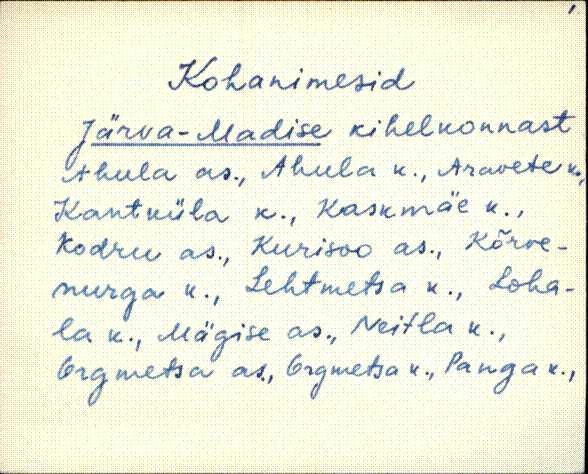 Kohanimesid
Järva-Madise kihelkonnast
Ahula as., Ahula k., Aravete k.,
Kantküla k., Kaskmäe k.,
Kodru as., Kurisoo as., Kõrve-
nurga k., Lehtmetsa k., Loha-
la k., Mägise as., Neitla k.,
Orgmetsa as., Orgmetsa k., Panga k.,